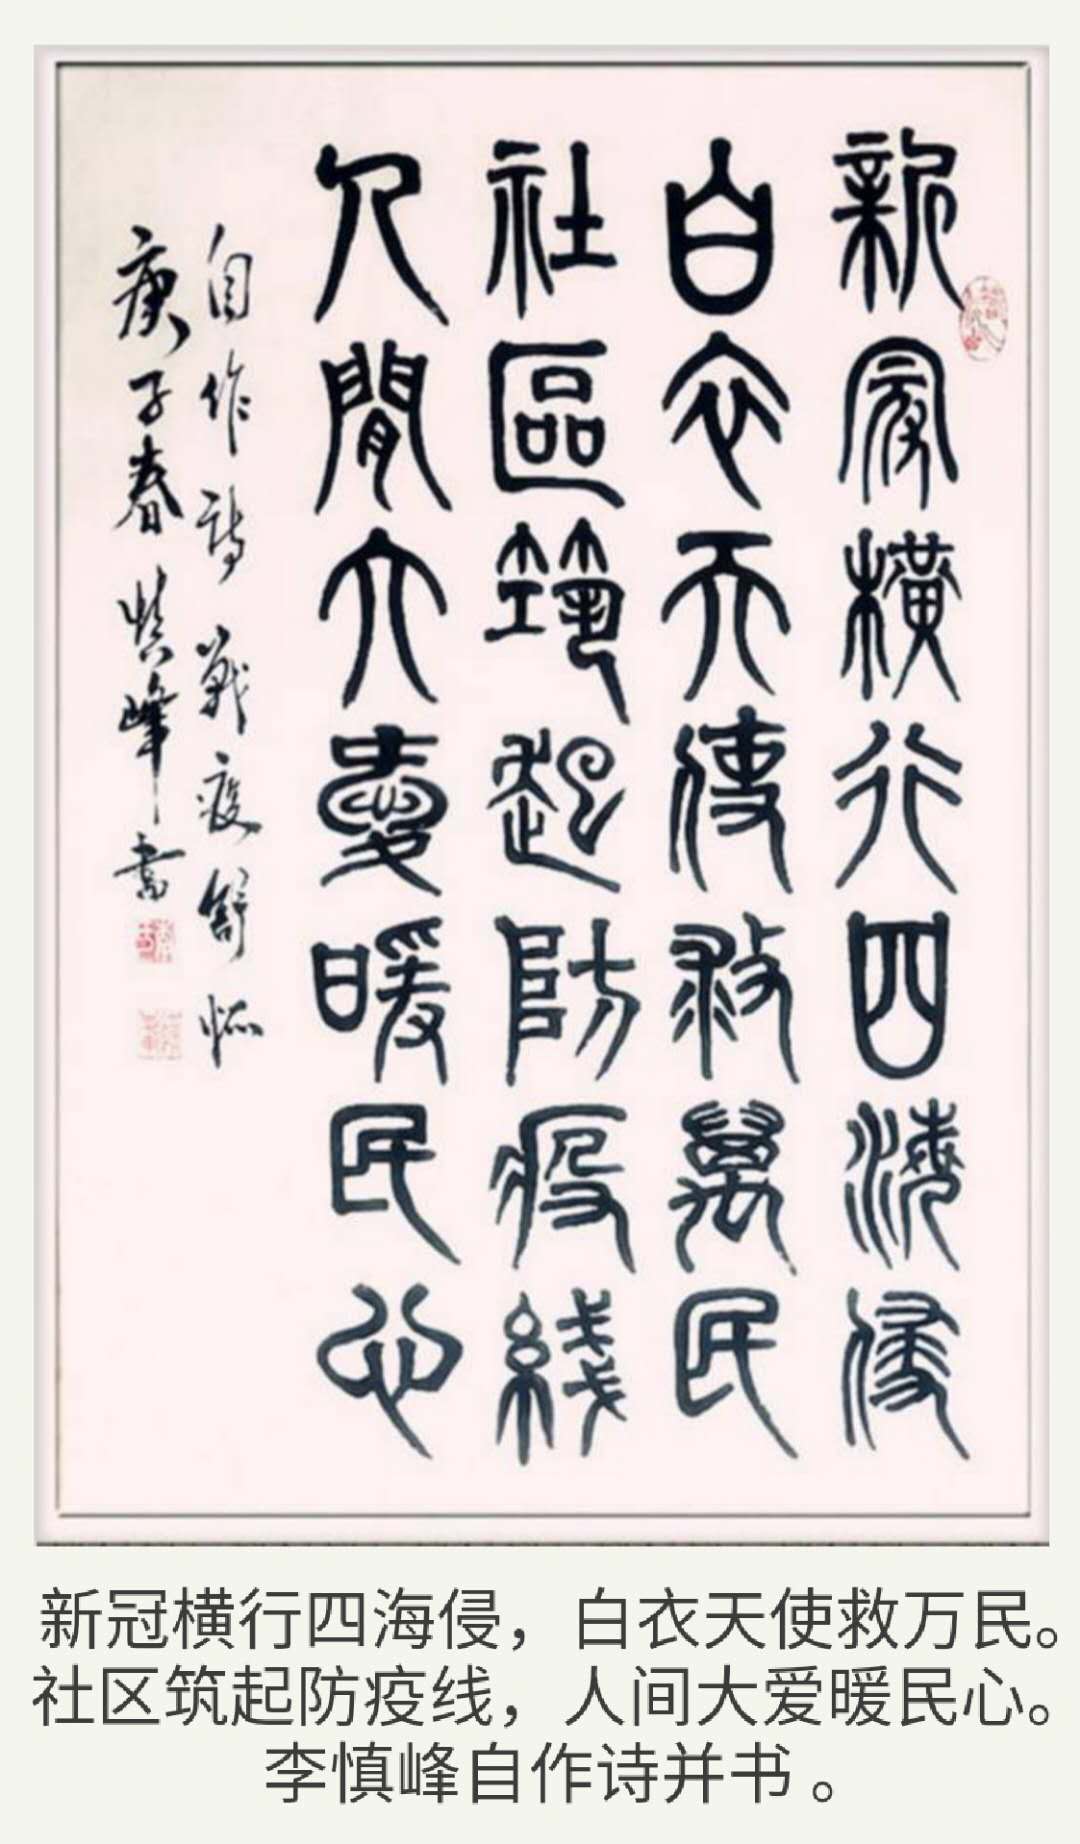 新冠橫行四海侵
白衣天使救萬民
社區築起防疫綫
人閒大愛暖民心
自作詩戰疫舒怀
庚子春慎峰書
新冠横行四海侵，白衣天使救万民。
社区筑起防疫线，人间大爱暖民心。
李慎峰自作诗并书 。